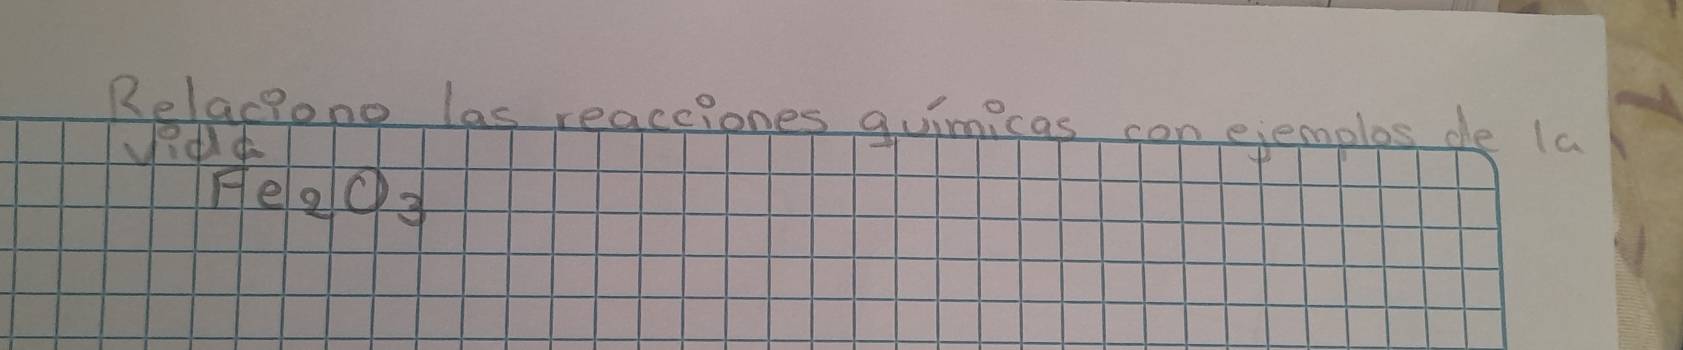 Relaciono las reacciones químicas con ejemplos de la
vida
Fe₂O₃